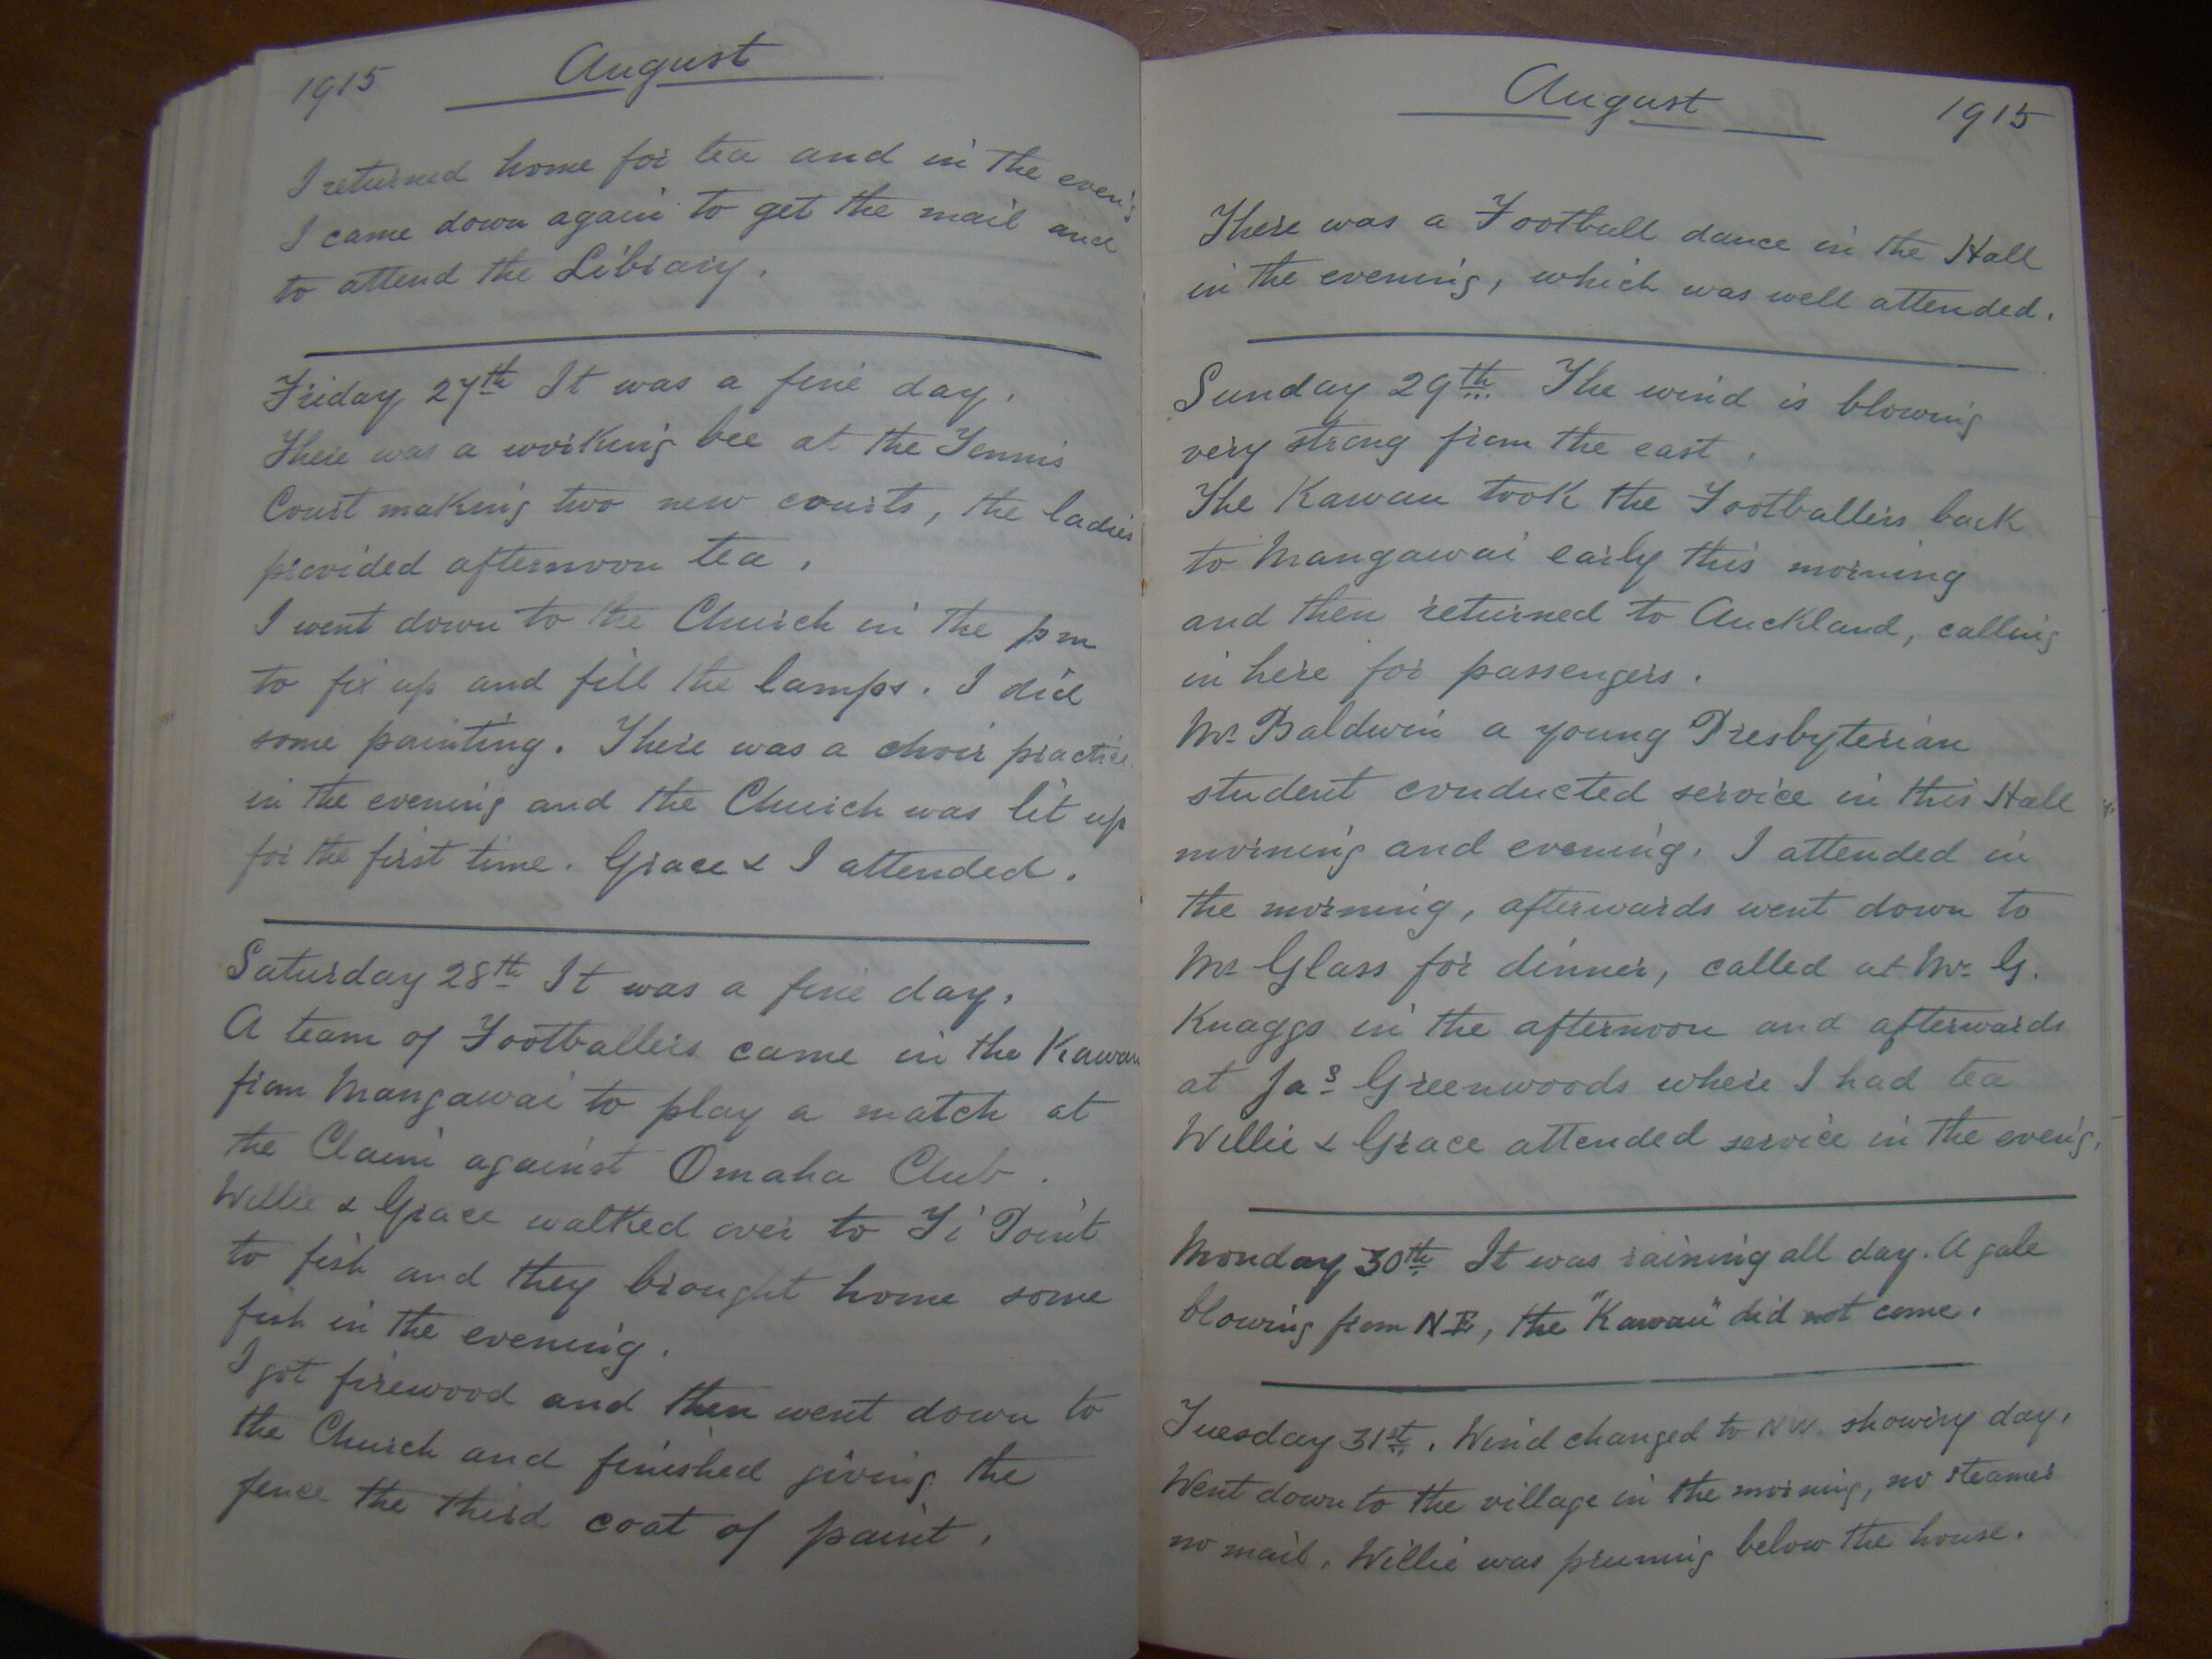 1915 August
I returned home for tea and in the eveng
I came down again to get the mail and
to attend the Library.
Friday 27th It was a fine day.
There was a working bee at the Tennis
Court making two new courts, the ladies
provided afternoon tea.
I went down to the Church in the pm
to fix up and fill the lamps. I did
some painting. There was a choir practice
in the evening and the Church was lit up
for the first time. Grace & I attended.
Saturday 28th It was a fine day.
A team of Footballers came in the Kawau
from Mangawai to play a match at
the Claim against Omaha Club.
Willie & Grace walked over to Ti Point
to fish and they brought home some
fish in the evening.
I got firewood and then went down to
the Church and finished giving the
fence the third coat of paint.
August 1915
There was a Football dance in the Hall
in the evening, which was well attended.
Sunday 29th The wind is blowing
very strong from the east.
The Kawau took the Footballers back
to Mangawai early this morning
and then returned to Auckland, calling
in here for passengers.
Mr Baldwin a young Presbyterian
student conducted service in this Hall
morning and evening. I attended in
the morning, afterwards went down to
Mr Glass for dinner, called at Mr G.
Knaggs in the afternoon and afterwards
at Jas Greenwoods where I had tea
Willie & Grace attended service in the eveng.
Monday 30th It was raining all day. A gale
blowing from NE, the "Kawau" did not come.
Tuesday 31st. Wind changed to NW. showery day.
Went down to the village in the morning, no steamer
no mail. Willie was pruning below the house.